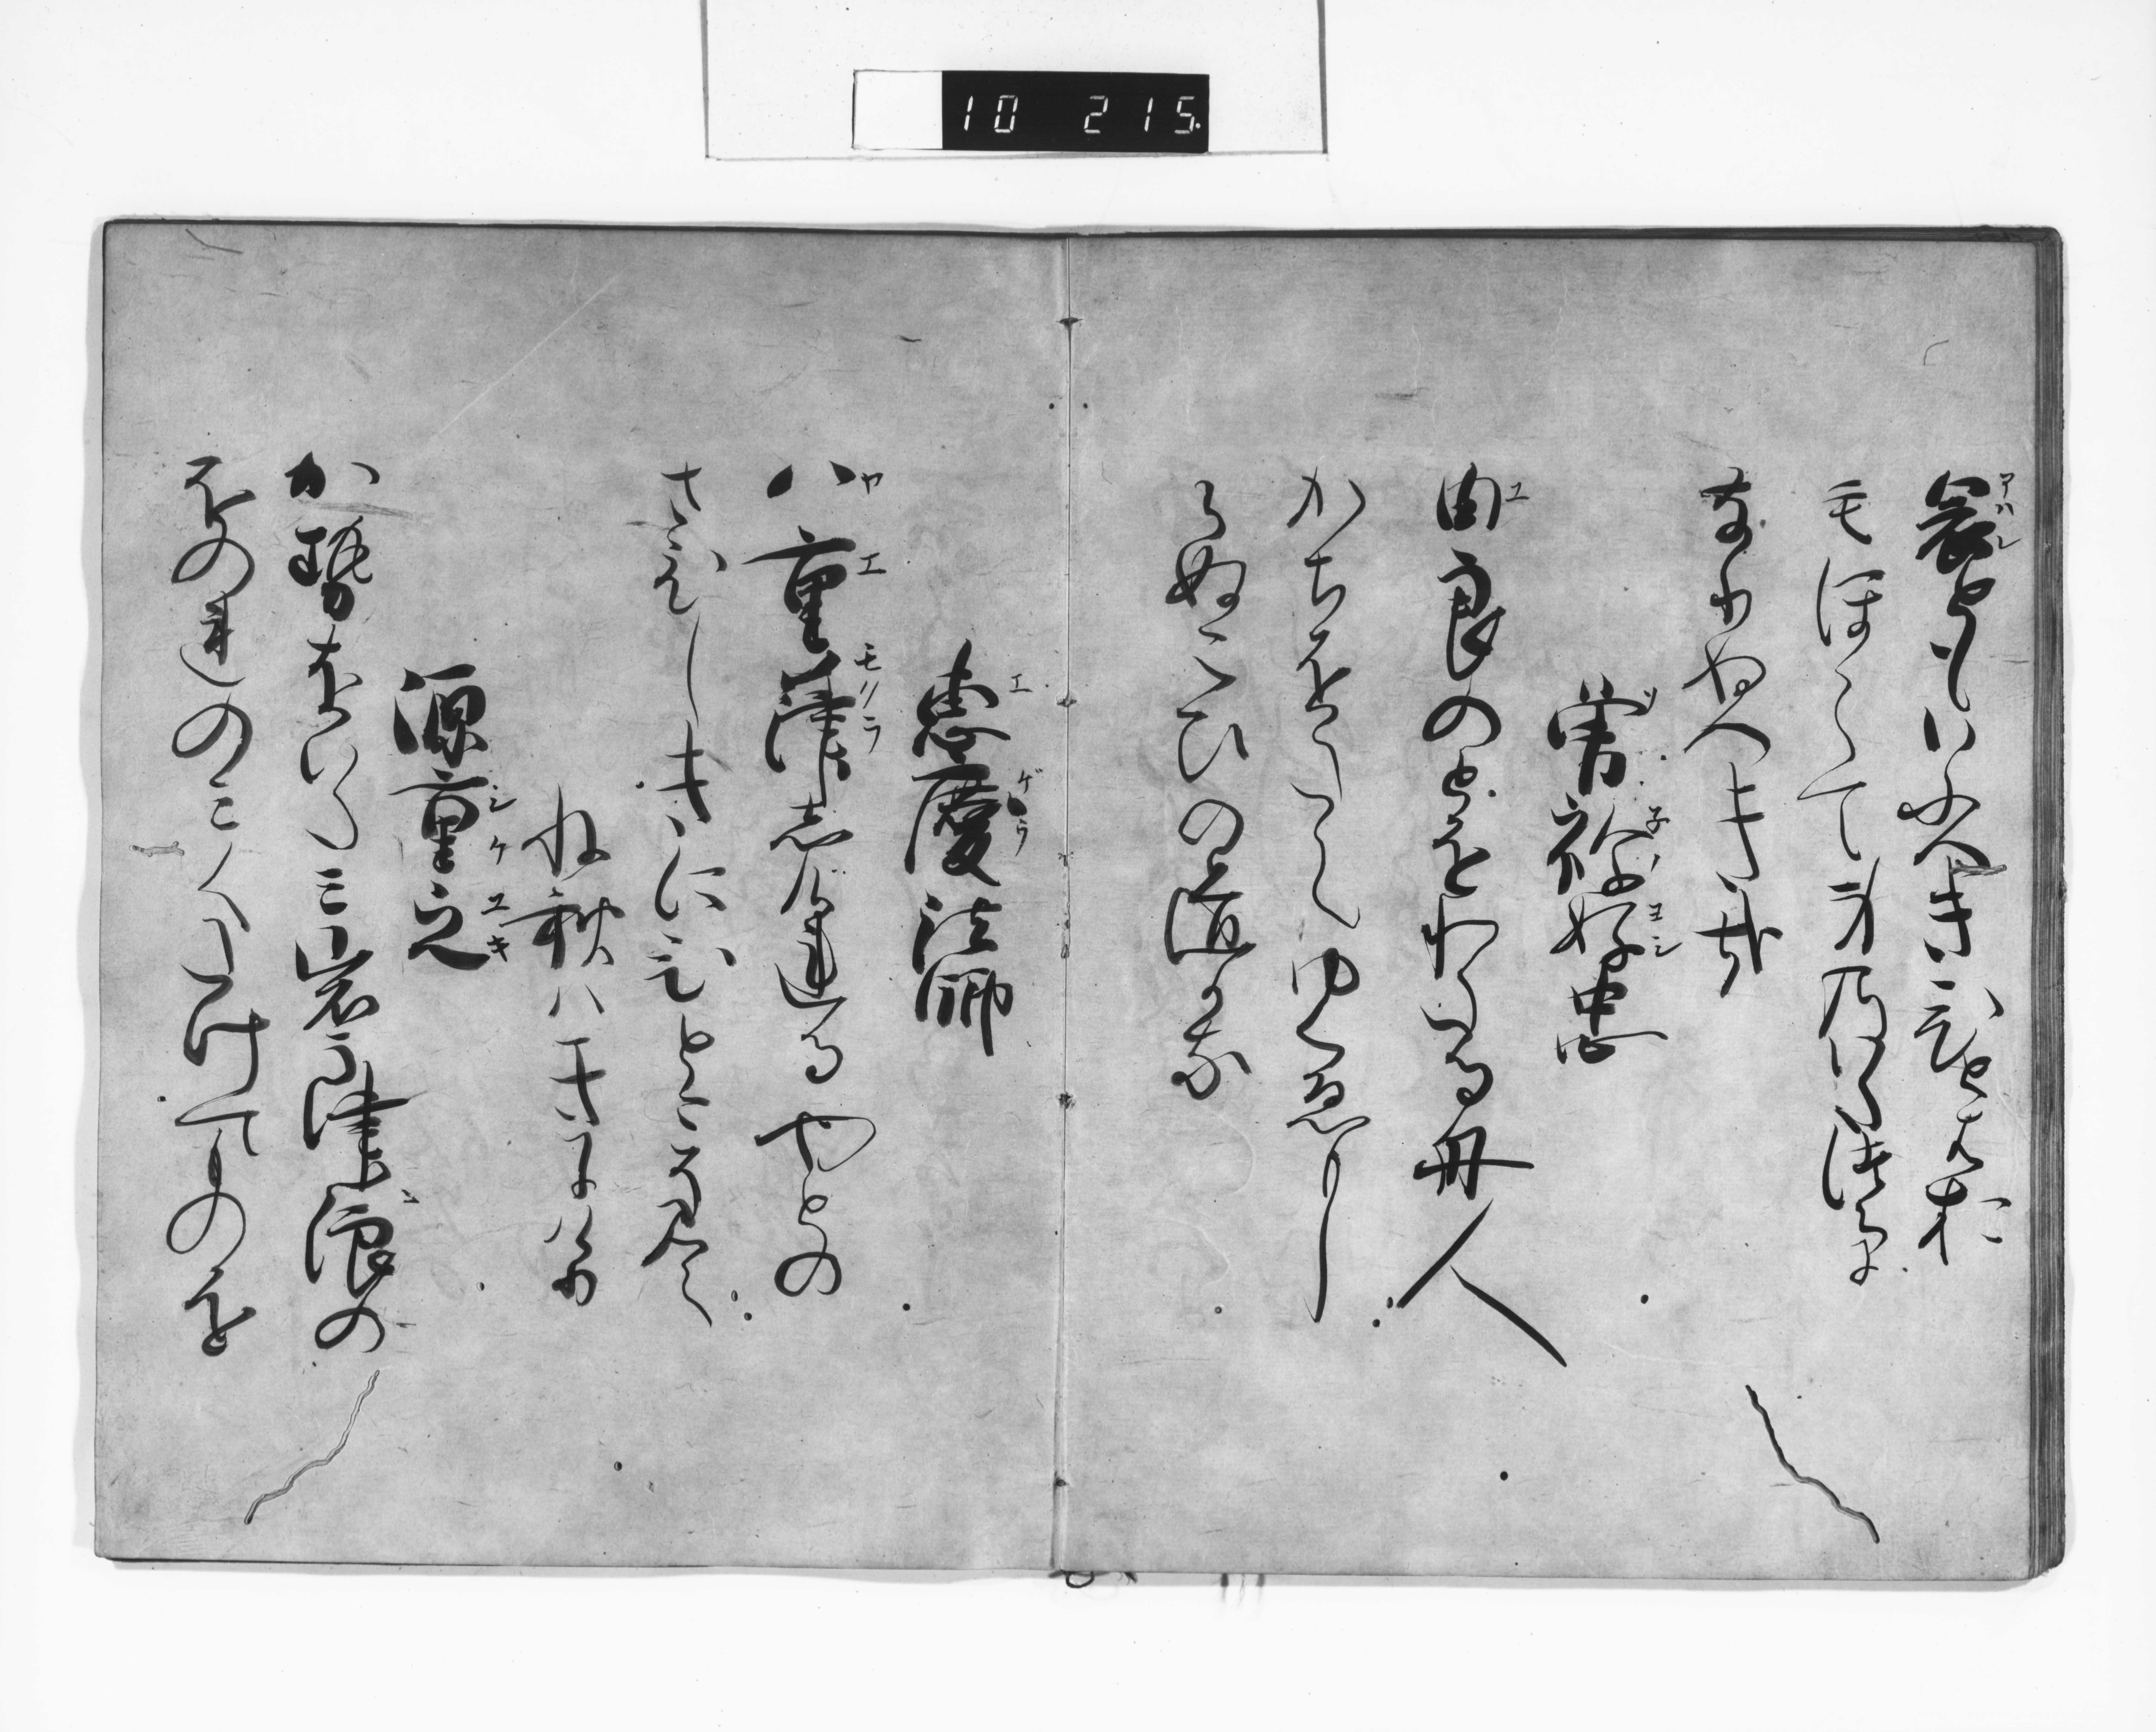 10 215
哀ともいふへき人はお
もほえて身乃いたつら尓
なりぬへき哉
曽祢好忠
由良のとをわたる舟人
かちをたえゆくゑも
しらぬこひの道かな
恵慶法師
八重葎志け連るやとの
さひしきに人こそ見え
ね秋ハきにけり
源重之
か勢をいたミ岩うつ浪の
をの連のミくたけてものを